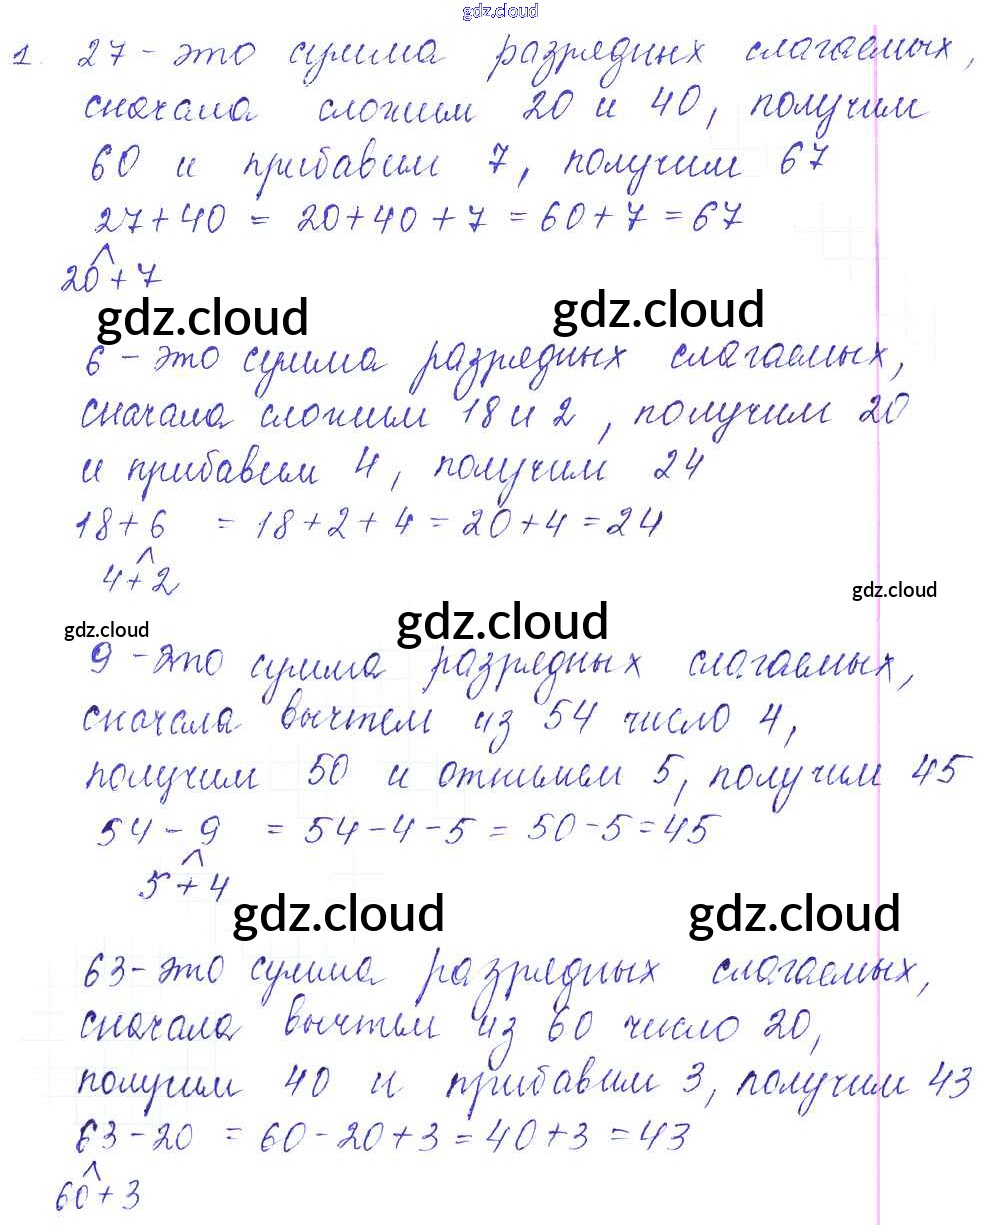 gdz.cloud
1. 27 - это сумма разрядных слагаемых,
сначала сложим 20 и 40, получим
60 и прибавим 7, получим 67
27+40 = 20+40+7=60+7=67
20+7
gdz.cloud gdz.cloud
6 - это сумма разрядных слагаемых,
сначала сложим 18 и 2, получим 20
и прибавим 4, получим 24
18+6 = 18+2+4=20+4=24
4+2
gdz.cloud
gdz.cloud
gdz.cloud
9 - это сумма разрядных слагаемых,
сначала вычтем из 54 число 4,
получим 50 и отнимем 5, получим 45
54-9 = 54-4-5=50-5=45
5+4
gdz.cloud gdz.cloud
63- это сумма разрядных слагаемых,
сначала вычтем из 60 число 20,
получим 40 и прибавим 3, получим 43
63-20 = 60-20+3=40+3=43
60+3